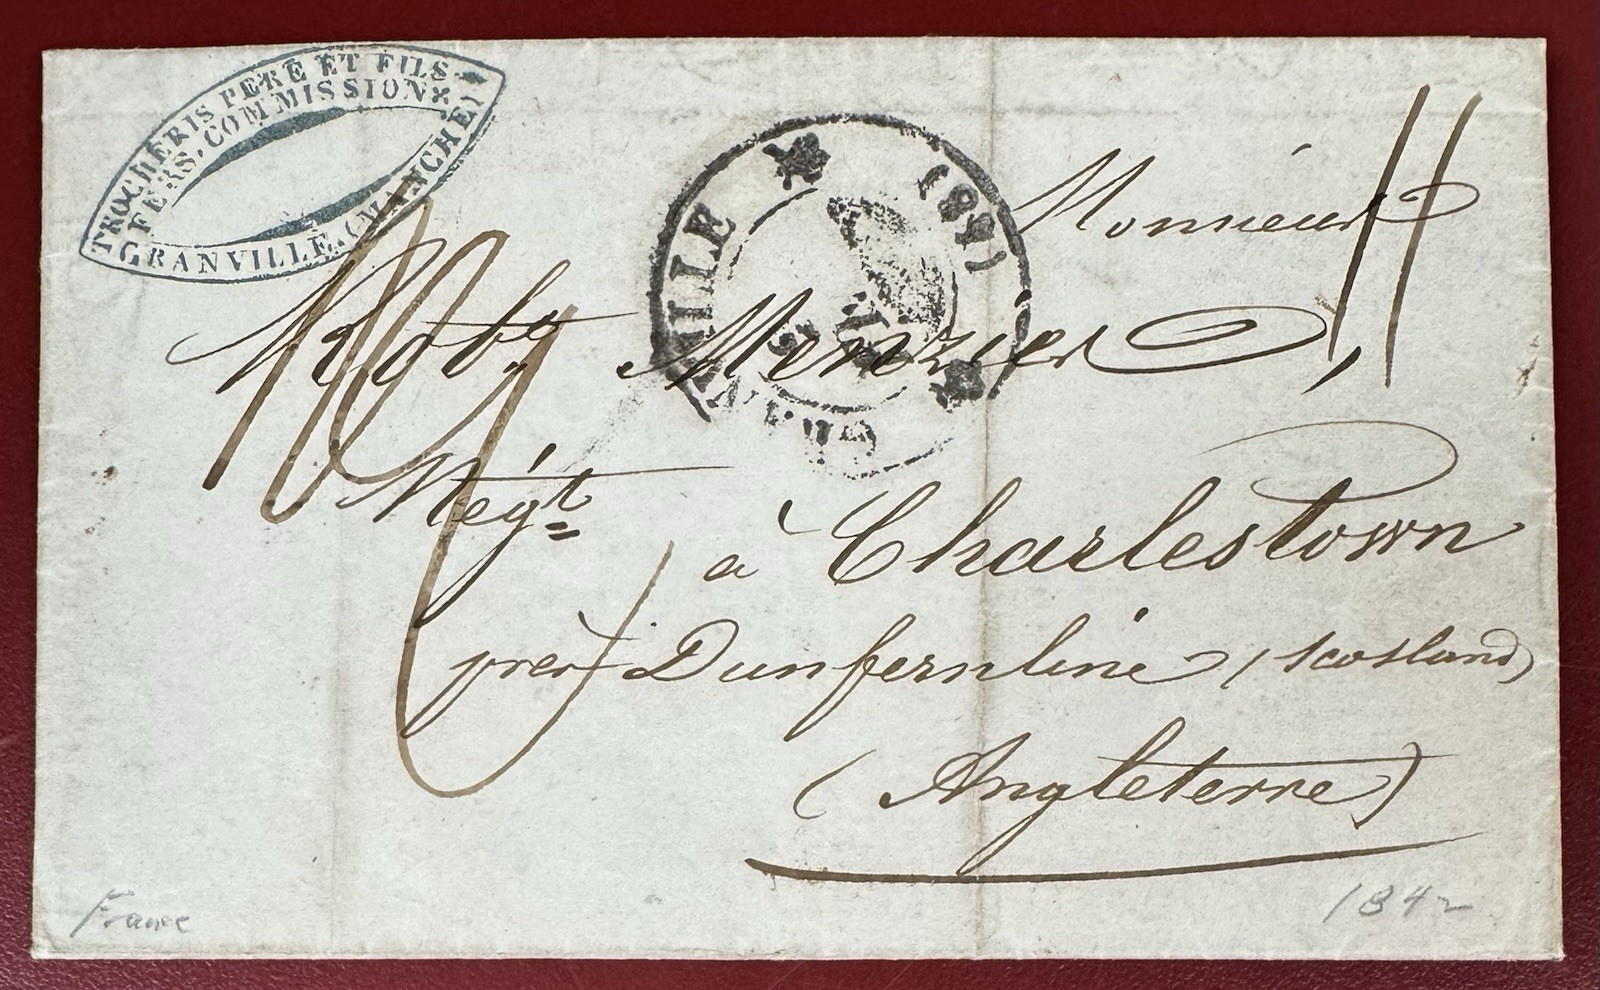 TROCHERIS PERE ET FILS
FERS. COMMISSION
GRANVILLE. (MANCHE)
GRANVILLE
11
Monsieur
Robt Menzies,
Négt
à Charlestown
près Dunfernline (scostland)
(Angleterre)
France
1842